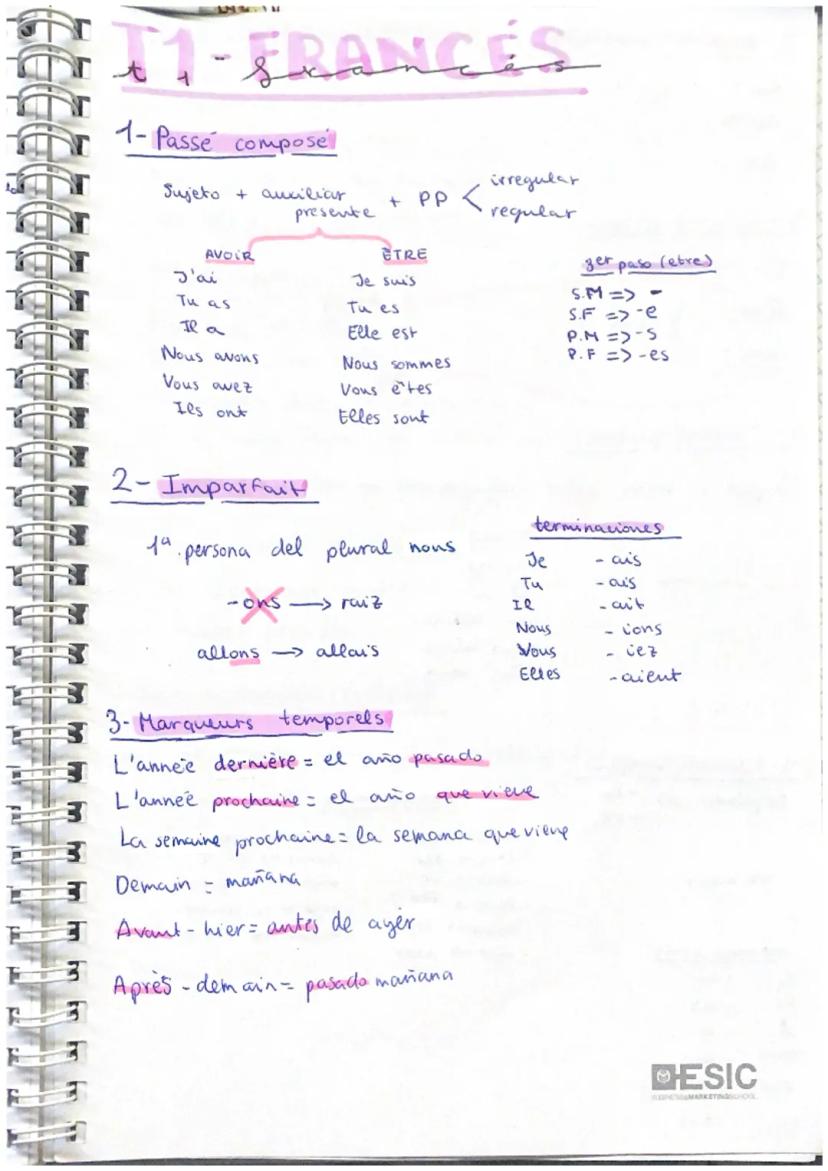 T1-FRANCÉS
t1-francés
1- Passé composé
Sujeto + auxiliar presente + PP < irregular
regular
AVOIR ÊTRE
J'ai Je suis
Tu as Tu es
Il a Elle est
Nous avons Nous sommes
Vous avez Vous êtes
Ils ont Elles sont
3er paso (etre)
S.M => -
S.F => -e
P.M => -s
P.F => -es
2- Imparfait
1ª persona del plural nous
-ons → raiz
allons → allais
terminaciones
Je - ais
Tu - ais
Il - ait
Nous - ions
Vous - iez
Elles - aient
3- Marqueurs temporels
L'année dernière = el año pasado
L'année prochaine = el año que viene
La semaine prochaine = la semana que viene
Demain = mañana
Avant - hier = antes de ayer
Après - demain = pasado mañana
ESIC
BUSINESS&MARKETINGSCHOOL